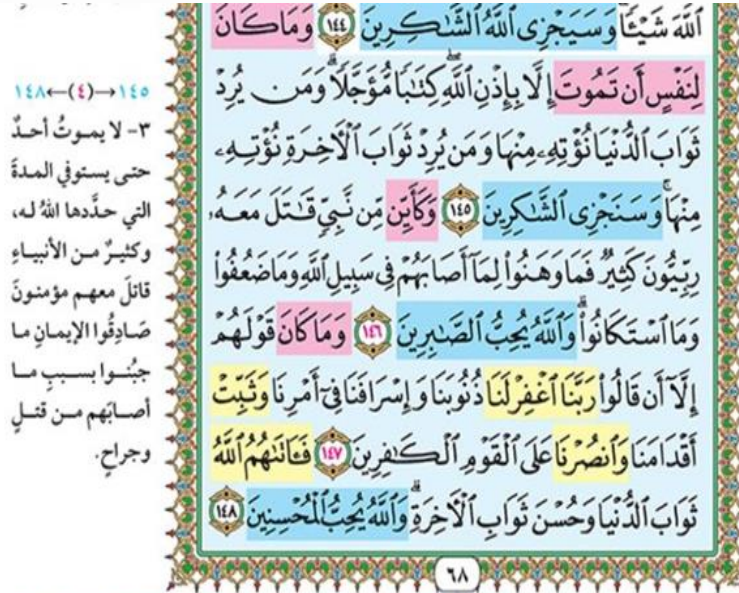 ٱللَّهَ شَيْـًٔا وَسَيَجْزِى ٱللَّهُ ٱلشَّـٰكِرِينَ ١٤٤ وَمَا كَانَ
لِنَفْسٍ أَن تَمُوتَ إِلَّا بِإِذْنِ ٱللَّهِ كِتَـٰبًا مُّؤَجَّلًا ۗ وَمَن يُرِدْ
ثَوَابَ ٱلدُّنْيَا نُؤْتِهِۦ مِنْهَا وَمَن يُرِدْ ثَوَابَ ٱلْـَٔاخِرَةِ نُؤْتِهِۦ
مِنْهَا ۚ وَسَنَجْزِى ٱلشَّـٰكِرِينَ ١٤٥ وَكَأَيِّن مِّن نَّبِىٍّ قَـٰتَلَ مَعَهُۥ
رِبِّيُّونَ كَثِيرٌ فَمَا وَهَنُوا۟ لِمَآ أَصَابَهُمْ فِى سَبِيلِ ٱللَّهِ وَمَا ضَعُفُوا۟
وَمَا ٱسْتَكَانُوا۟ ۗ وَٱللَّهُ يُحِبُّ ٱلصَّـٰبِرِينَ ١٤٦ وَمَا كَانَ قَوْلَهُمْ
إِلَّآ أَن قَالُوا۟ رَبَّنَا ٱغْفِرْ لَنَا ذُنُوبَنَا وَإِسْرَافَنَا فِىٓ أَمْرِنَا وَثَبِّتْ
أَقْدَامَنَا وَٱنصُرْنَا عَلَى ٱلْقَوْمِ ٱلْكَـٰفِرِينَ ١٤٧ فَـَٔاتَىٰهُمُ ٱللَّهُ
ثَوَابَ ٱلدُّنْيَا وَحُسْنَ ثَوَابِ ٱلْـَٔاخِرَةِ ۗ وَٱللَّهُ يُحِبُّ ٱلْمُحْسِنِينَ ١٤٨
٦٨
١٤٥→(٤)←١٤٨
٣- لا يموتُ أحدٌ
حتى يستوفي المدةَ
التي حدَّدها اللهُ له،
وكثيرٌ من الأنبياءِ
قاتلَ معهم مؤمنونَ
صَادِقُوا الإيمانِ ما
جبُنوا بسببِ ما
أصابَهم من قتلٍ
وجراحٍ.